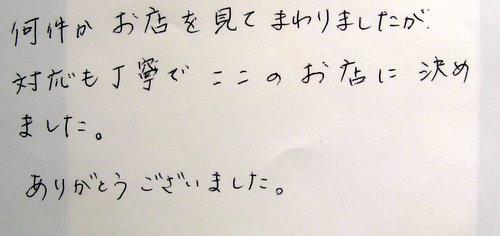 何件か お店を見てまわりましたが、
対応も丁寧で ここのお店に 決め
ました。
ありがとうございました。